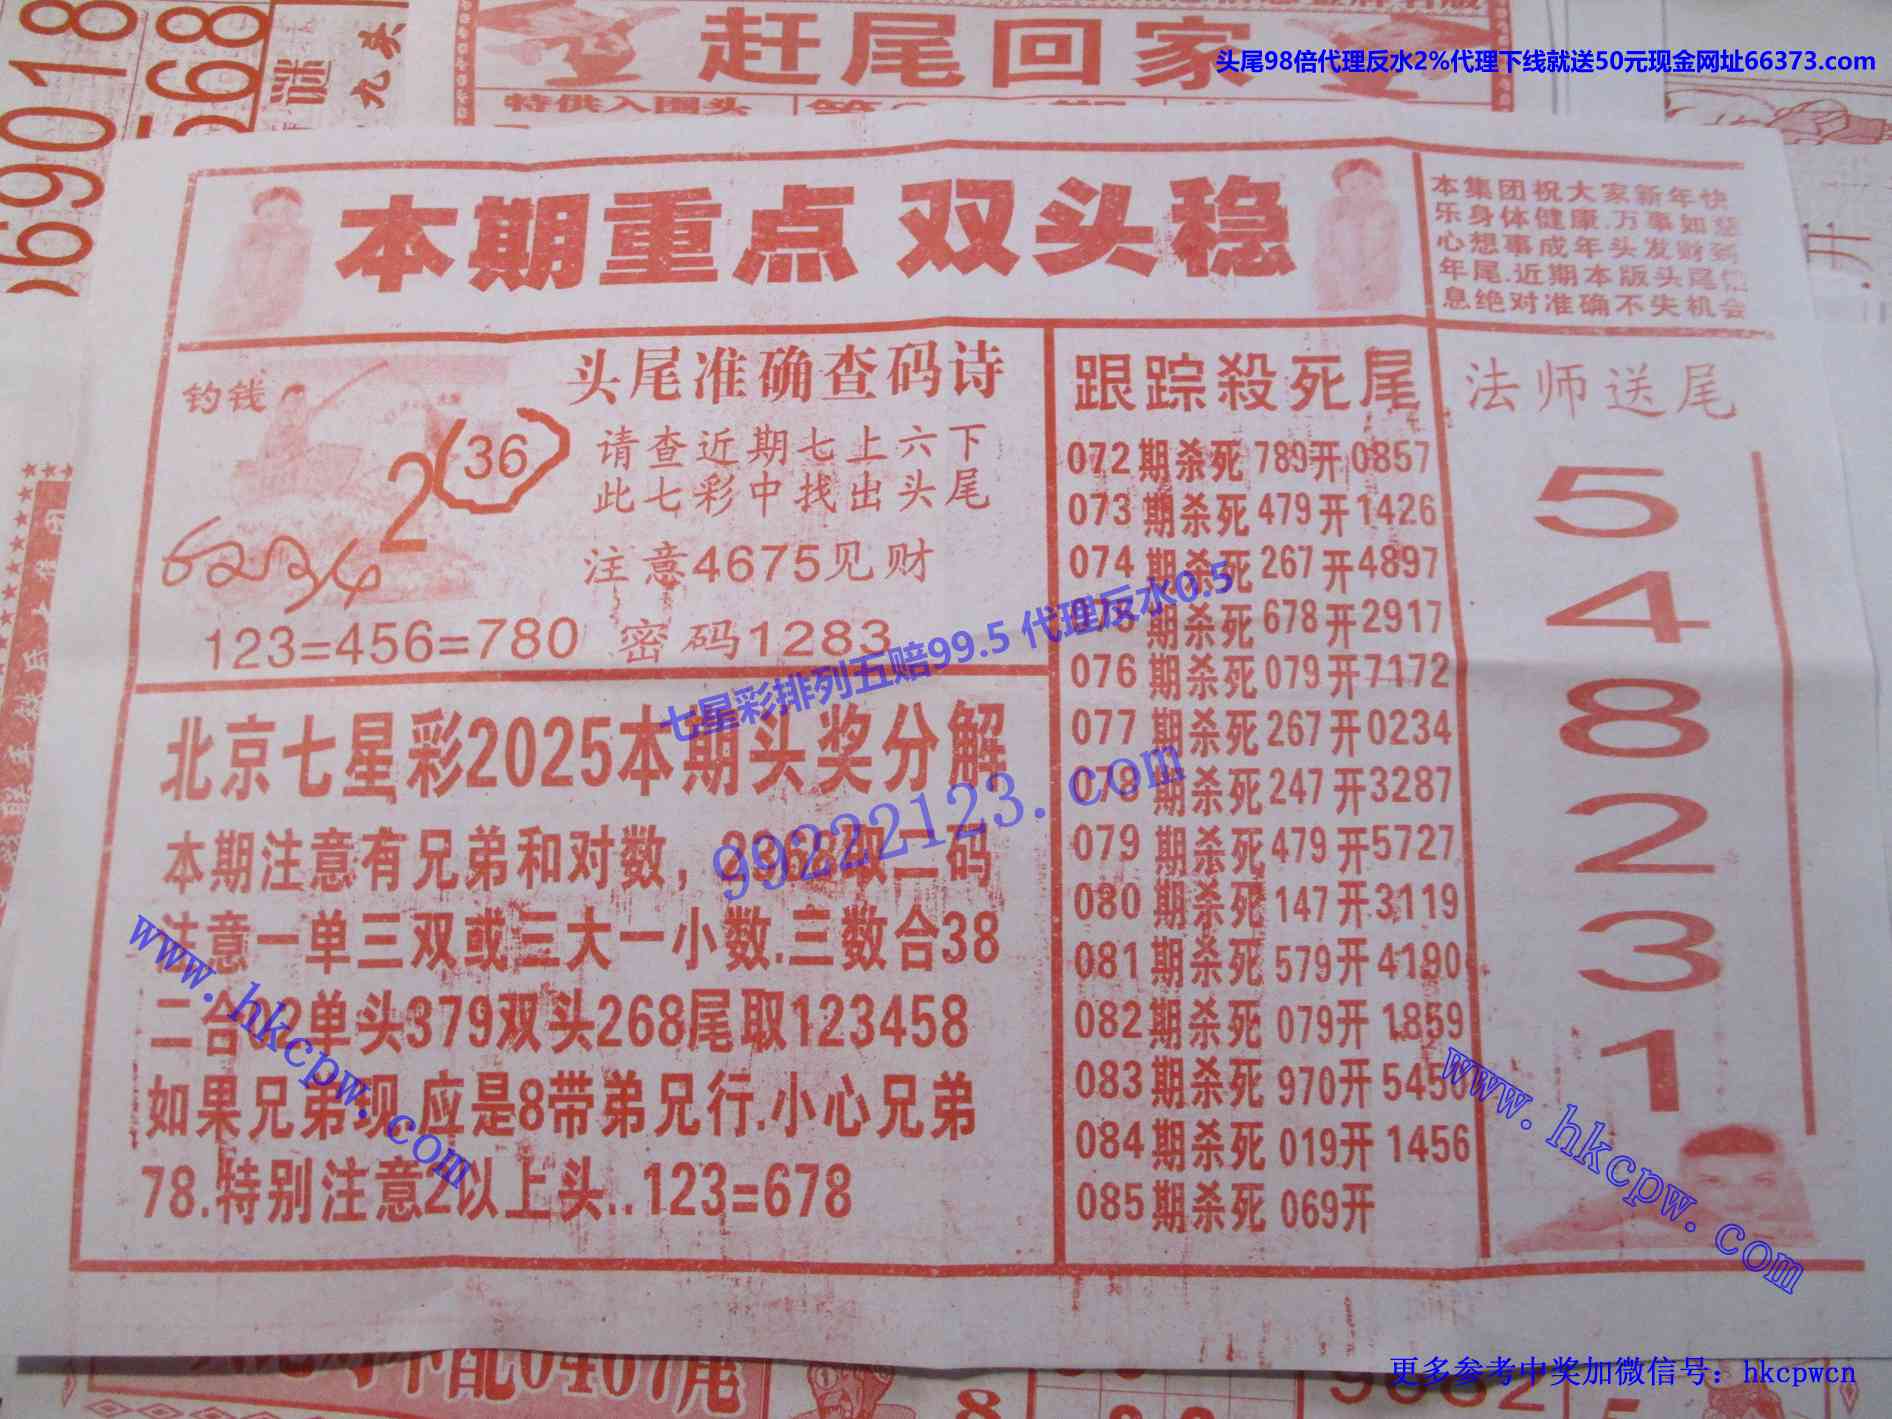 69018
568
谜
九头
赶尾回家
特供入围头
头尾98倍代理反水2%代理下线就送50元现金网址66373.com
本期重点 双头稳
本集团祝大家新年快
乐身体健康.万事如
心想事成年头发财到
年尾.近期本版头尾信
息绝对准确不失机会
钓钱
2 (36)
头尾准确查码诗
请查近期七上六下
此七彩中找出头尾
注意4675见财
123=456=780 密码1283
北京七星彩2025本期头奖分解
本期注意有兄弟和对数，2368取二码
注意一单三双或三大一小数.三数合38
二合 2单头379双头268尾取123458
如果兄弟现.应是8带弟兄行.小心兄弟
78.特别注意2以上头..123=678
跟踪殺死尾
072期杀死789开0857
073期杀死479开1426
074期杀死267开4897
075期杀死678开2917
076期杀死079开7172
077期杀死267开0234
078期杀死247开3287
079期杀死479开5727
080期杀死147开3119
081期杀死579开4190
082期杀死079开1859
083期杀死970开545
084期杀死019开1456
085期杀死069开
法师送尾
5
4
8
2
3
1
七星彩排列五赔99.5 代理反水0.5
99222123.com
www.hkcpw.com
www.hkcpw.com
配0407尾
8
9682
更多参考中奖加微信号：hkcpwcn